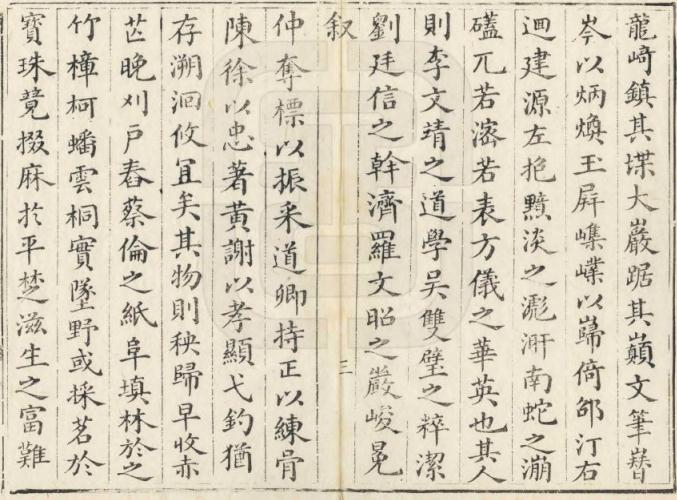 龍﨑鎮其堞大巖踞其巔文筆朁
岑以炳煥玉屏嶫以巋倚邵汀右
迴建源左挹黯淡之瀧汧南蛇之淜
礚兀若滵若表方儀之華英也其人
則李文靖之道學吳雙璧之粹潔
劉廷信之幹濟羅文昭之嚴峻晃
叙
三
仲奪標以振采道卿持正以練骨
陳徐以忠著黄謝以孝顯弋釣猶
存溯洄攸冝矣其物則秧歸早收赤
芒晚刈戸舂蔡倫之紙阜填林於之
竹樟柯蟠雲桐實墜野或採茗於
寳珠竟掇麻扵平埜滋生之富難